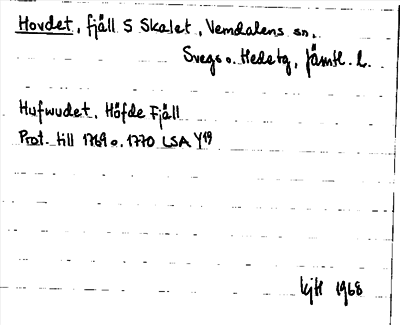 Hovdet, fjäll S Skalet, Vemdalens sn,
Svegs o. Hede tg, Jämtl. l.
Hufwudet, Höfde Fjäll
Prot. till 1769 o. 1770 LSA Y19
1968